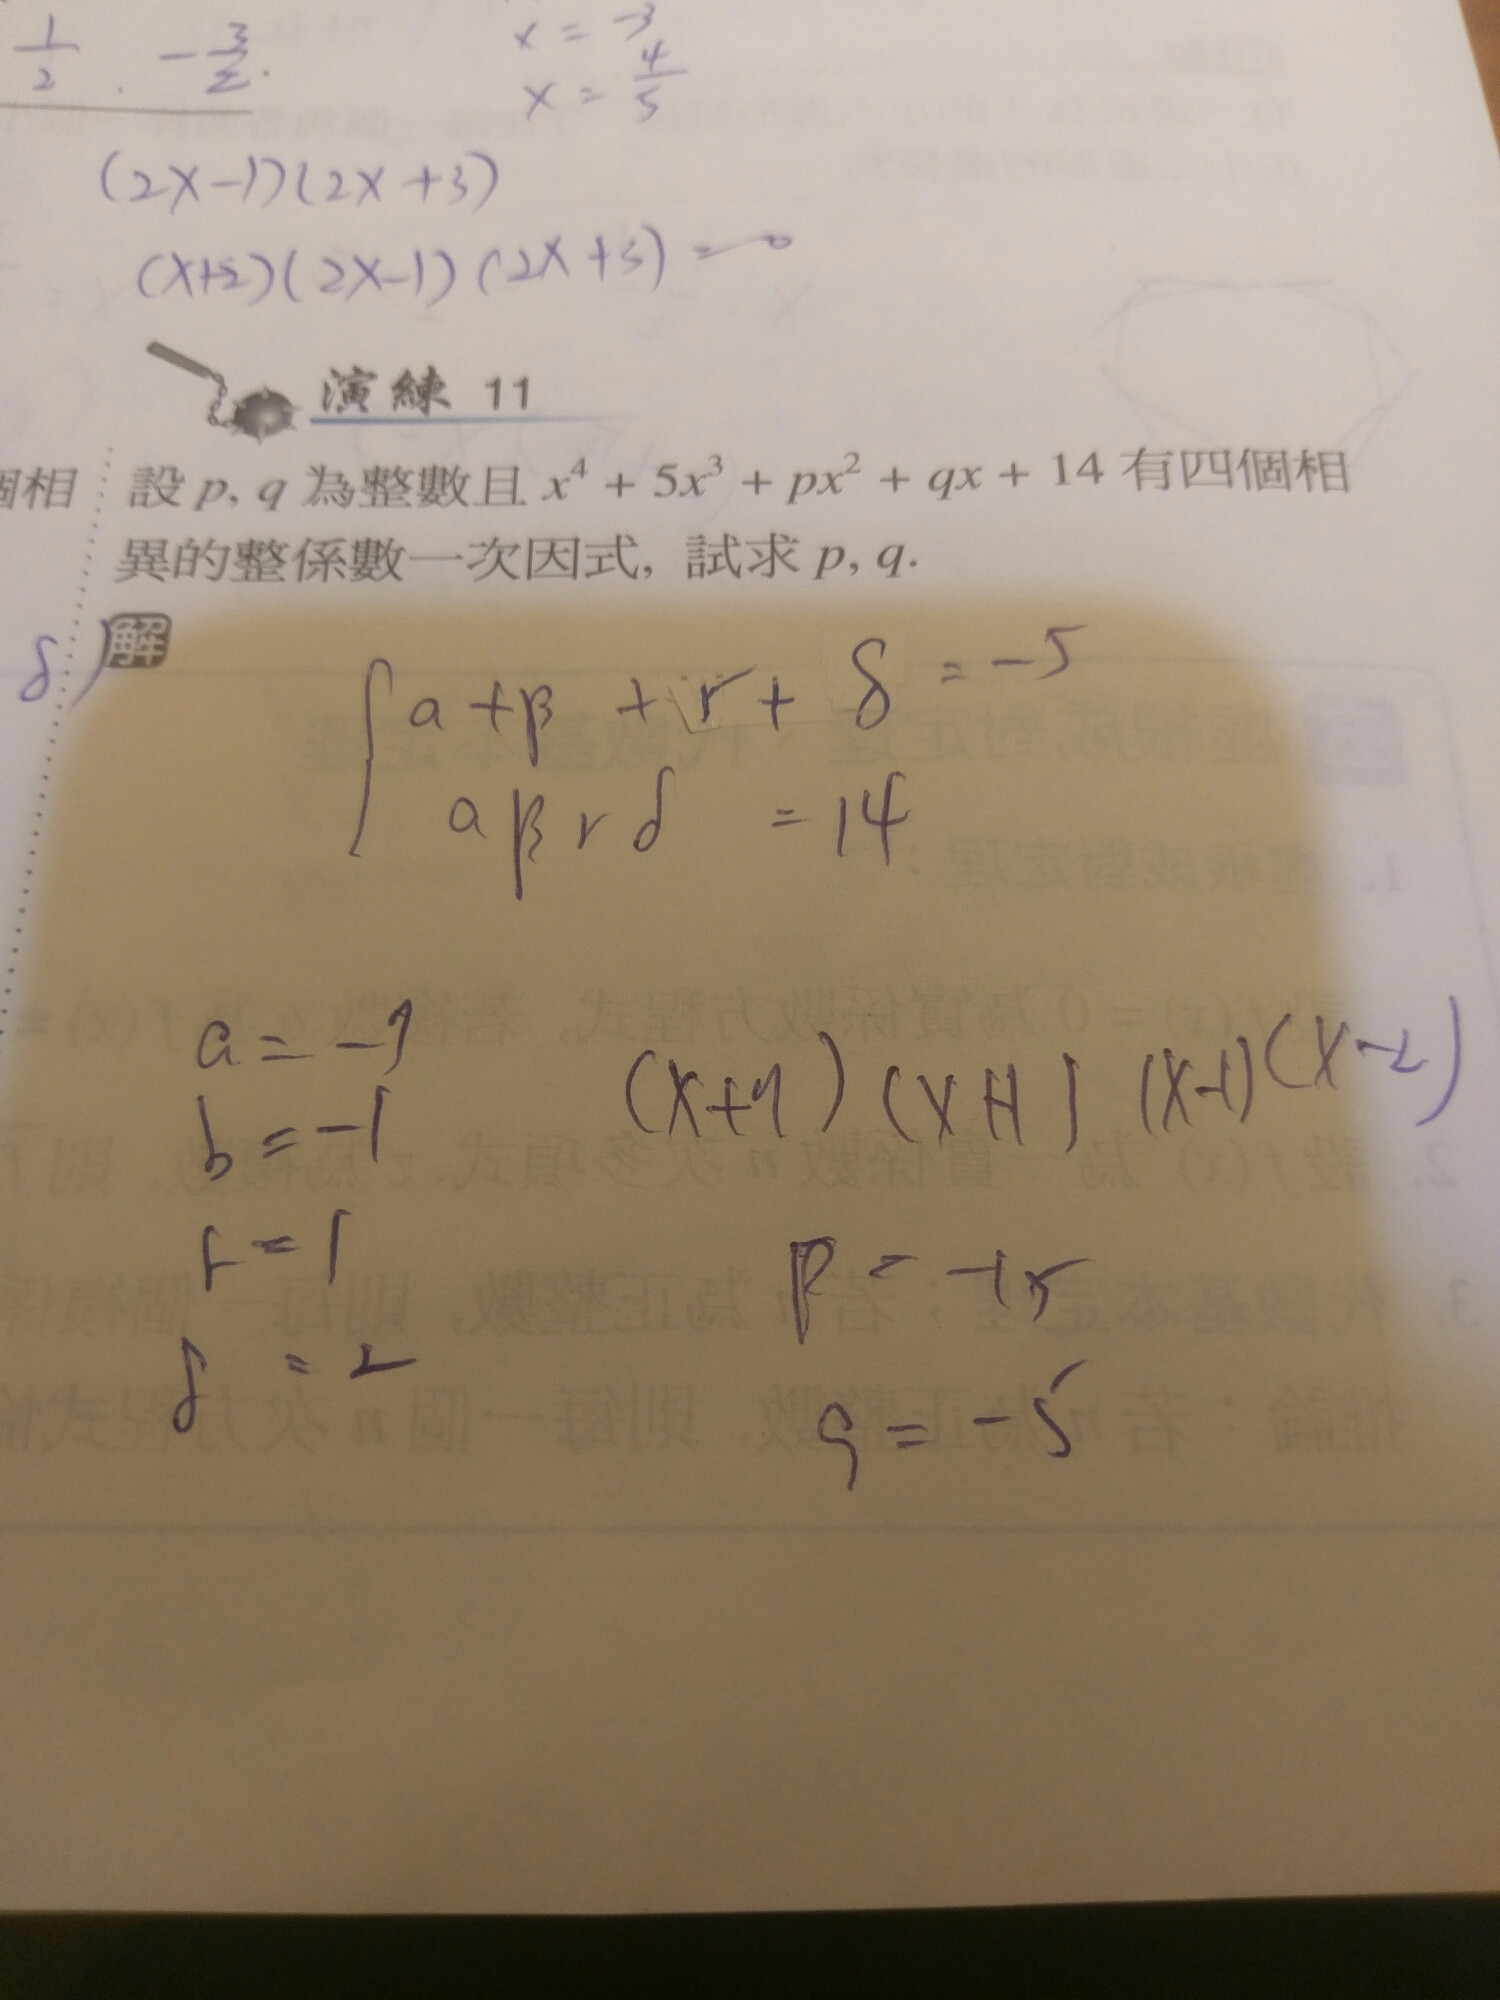 1/2 . -3/2.
x = -3
x = 4/5
(2x-1)(2x+3)
(x+2)(2x-1)(2x+3)=0
演練 11
個相
設 p, q 為整數且 x⁴ + 5x³ + px² + qx + 14 有四個相
異的整係數一次因式, 試求 p, q.
δ)
解
a + β + r + δ = -5
a β r δ = 14
a = -7
b = -1
r = 1
δ = 2
(x+7)(x+1)(x-1)(x-2)
p = -15
q = -5